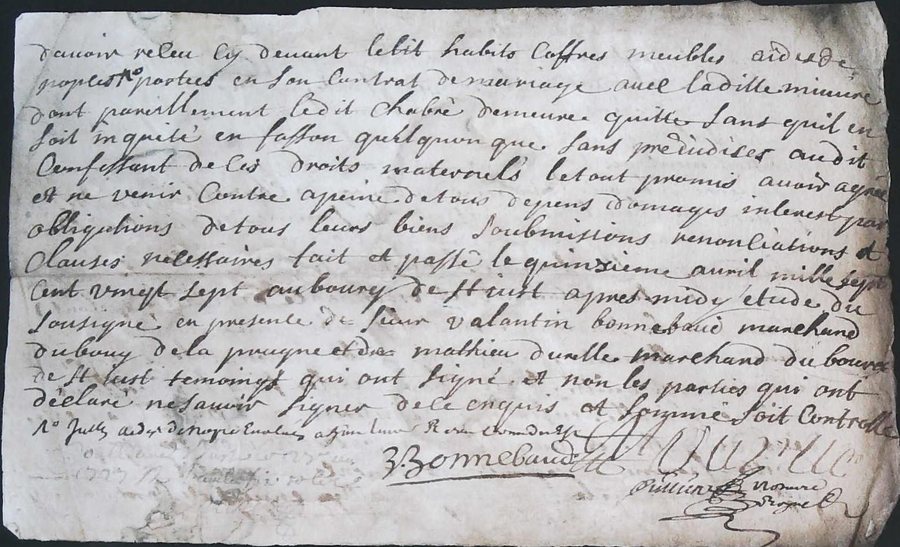 davoir releu cy devant ledit habits Coffres meubles aides de
nopces No parties en son Contrat de mariage avec ladille mineure
dont pareillement ledit Chabre demeure quitte sans quil en
soit inqueté en fasson quelquonque sans preiudises audit
Confessant de ses droits maternels le tout promis avoir agreé
et ne venir Contre apeine de tous depens domages interest par
obligations de tous leurs biens soubmissions renonciations et
Clauses nécessaires fait et passé le quinzieme avril mille sept
Cent vingt sept au bourg de St iust apres midy etude du
sousigné en presence de sieur Valantin bonnebaud marchand
du bourg de la prugne et de mathieu durelle marchand du bourg
de St iust temoings qui ont signé et non les parties qui ont
déclaré ne savoir signer de ce enquis et somme soit Controllé
V. Bonnebaud
Notaire
Royal